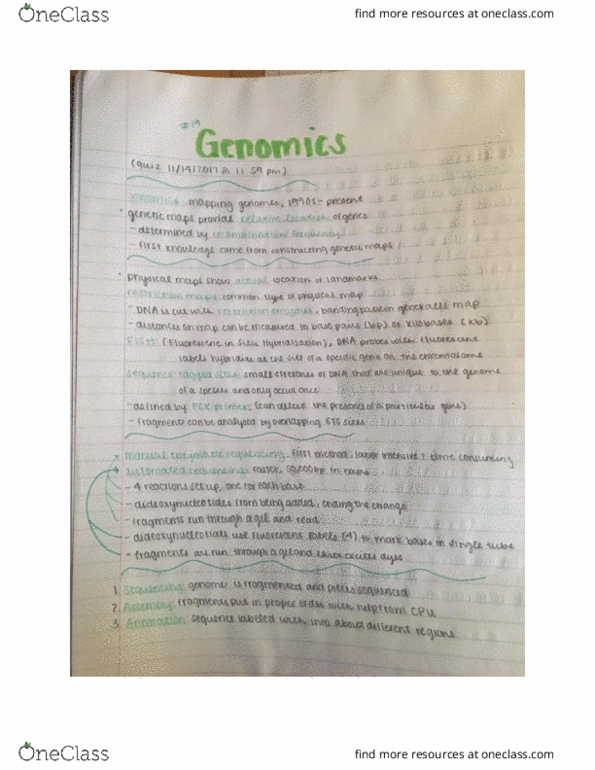 OneClass
find more resources at oneclass.com
#19
Genomics
(quiz 11/14/2017 @ 11:59 pm)
genomics: mapping genomes, 1990s - present
· genetic maps provide relative location of genes
- determined by recombination frequency
- first knowledge came from constructing genetic maps
· physical maps show actual location of landmarks
restriction maps: common type of physical map
- DNA is cut with restriction enzymes, banding pattern generates map
- distances on map can be measured in base pairs (bp) or kilobases (kb)
FISH (Fluorescene in Situ Hybridization), DNA probes with fluorescent
labels hybridize at the site of a specific gene on the chromosome
sequence tagged sites: small stretches of DNA that are unique to the genome
of a species and only occur once
- defined by PCR primers (can detect the presence of a particular gene)
- fragments can be analyzed by overlapping STS sites
manual enzymatic sequencing: first method, labor intensive + time consuming
automated sequencing: faster, in hours
- 4 reactions set up, one for each base
- dideoxynucleotides from being added, ending the change
- fragments run through a gel and read
- dideoxynucleotides use fluorescent labels (4) to mark bases in single tube
- fragments are run through a gel and laser excites dyes
1. Sequencing: genome is fragmented and pieces sequenced
2. Assembly: fragments put in proper order with help from CPU
3. Annotation: sequence labeled with info about different regions
OneClass
find more resources at oneclass.com